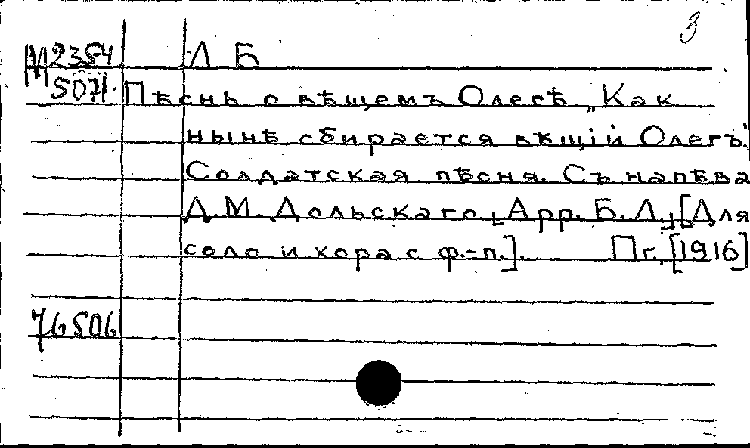 З
М 2384 Л Б
507/. Пѣснь о вѣщемъ Олегѣ „Как
нынѣ сбирается вѣщій Олегъ".
Солдатская пѣсня. Съ напѣва
Д.М. Дольскаго, [Арр. Б. Л.] [Для
соло и хора с ф.-п.]. Пг., [1916]
76506